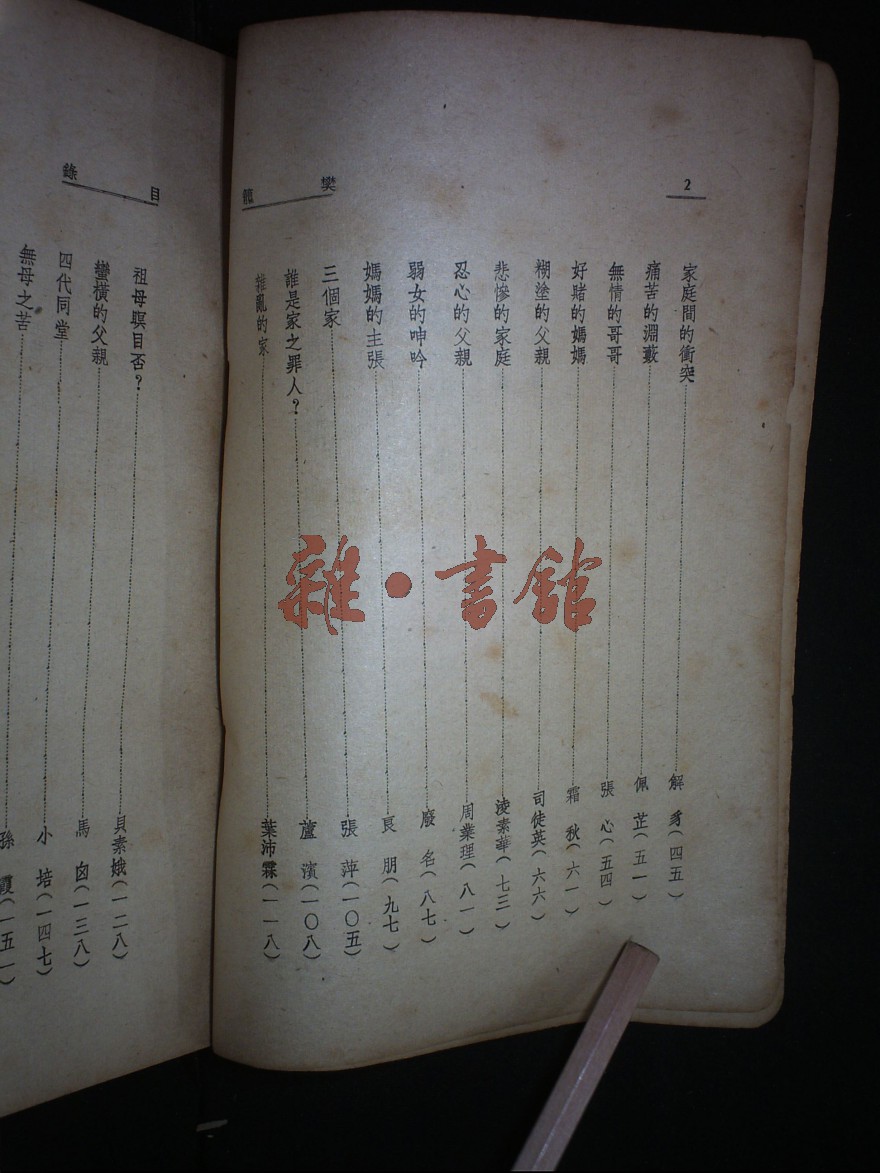 2
樊籠
家庭間的衝突……解 豸(四五)
痛苦的淵藪……佩 芷(五一)
無情的哥哥……張 心(五四)
好賭的媽媽……霜 秋(六一)
糊塗的父親……司徒英(六六)
悲慘的家庭……淩素華(七三)
忍心的父親……周業理(八一)
弱女的呻吟……廢 名(八七)
媽媽的主張……艮 朋(九七)
三個家……張 萍(一〇五)
誰是家之罪人?……蘆 濱(一〇八)
雜亂的家……葉沛霖(一一八)
目錄
祖母瞑目否?……貝素娥(一二八)
蠻橫的父親……馬 囟(一三八)
四代同堂……小 培(一四七)
無母之苦……孫 霞(一五一)
雜·書館